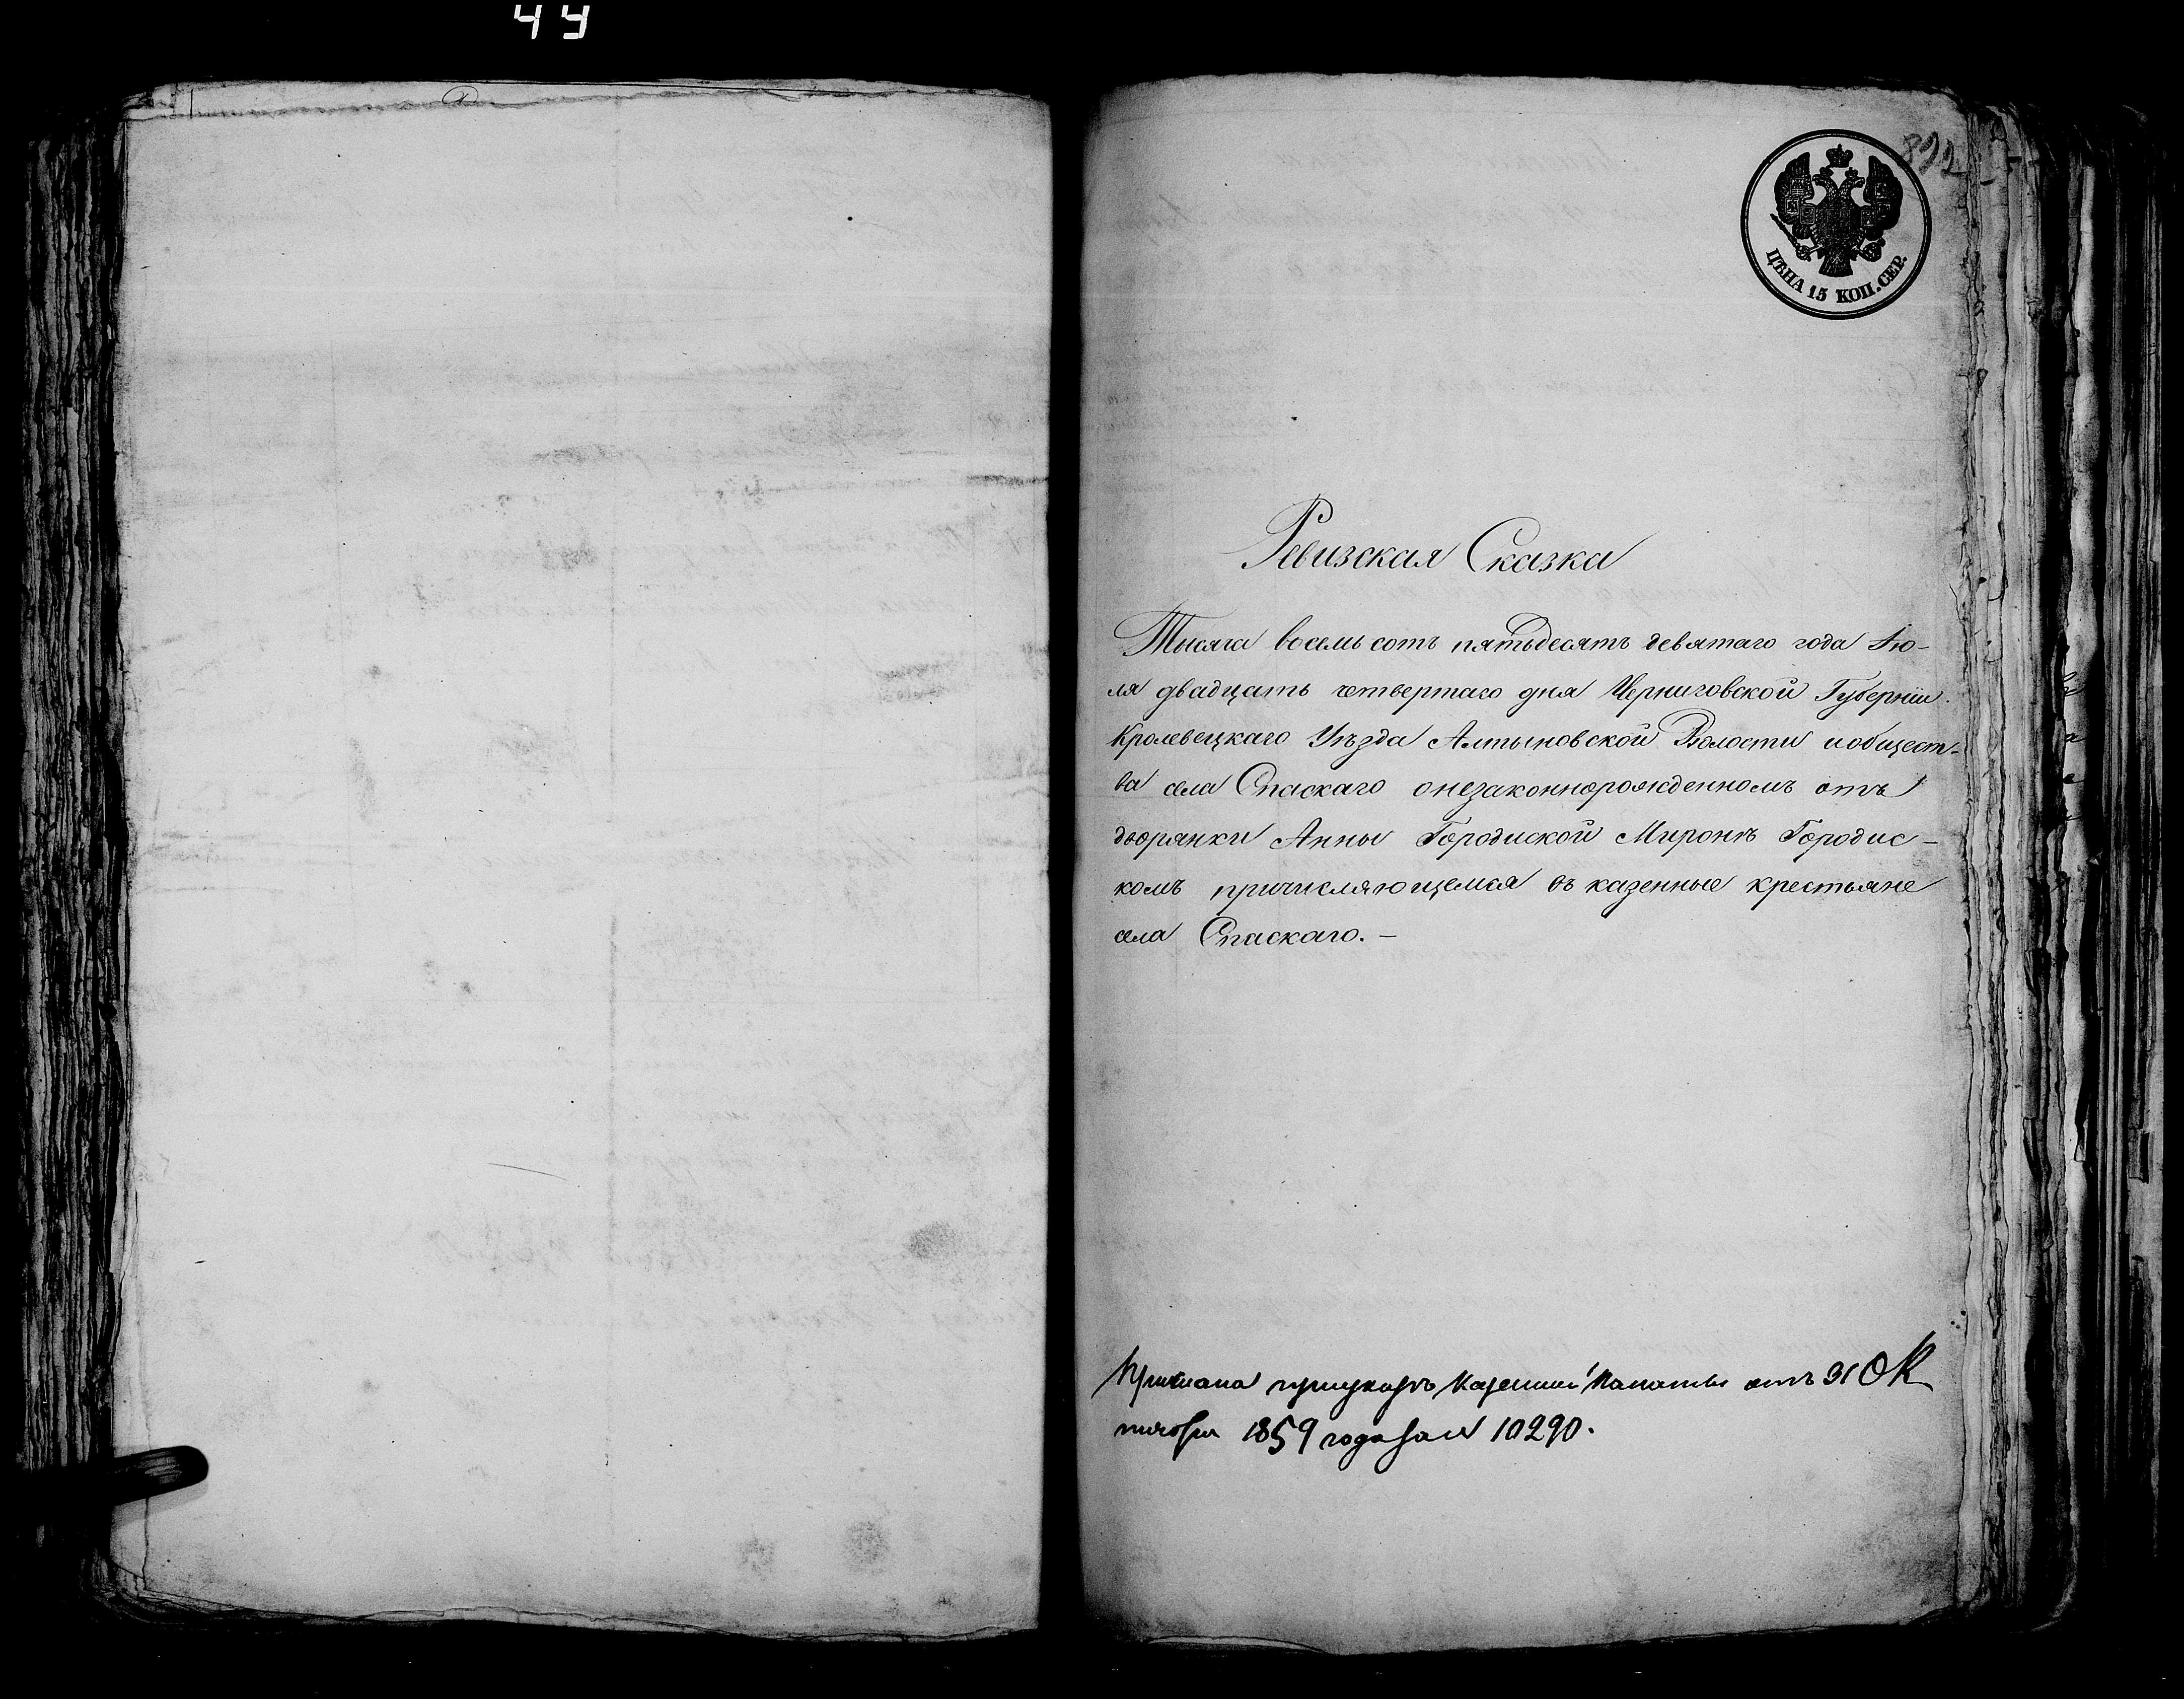 44
822
ЦѢНА 15 КОП. СЕР.
Ревизская Сказка
Тысяча восемь сотъ пятьдесятъ девятаго года Ію-
ля двадцать четвертаго дня Черниговской Губерніи
Кролевецкаго Уѣзда Алтыновской Волости и общест-
ва села Спаскаго о незаконнорожденномъ отъ
дворянки Анны Городиской Миронѣ Городис-
комъ причисляющемся въ казенные крестьяне
села Спаскаго. —
Прислана при указѣ Казенной Палаты отъ 31 Ок
тября 1859 года за № 10290.